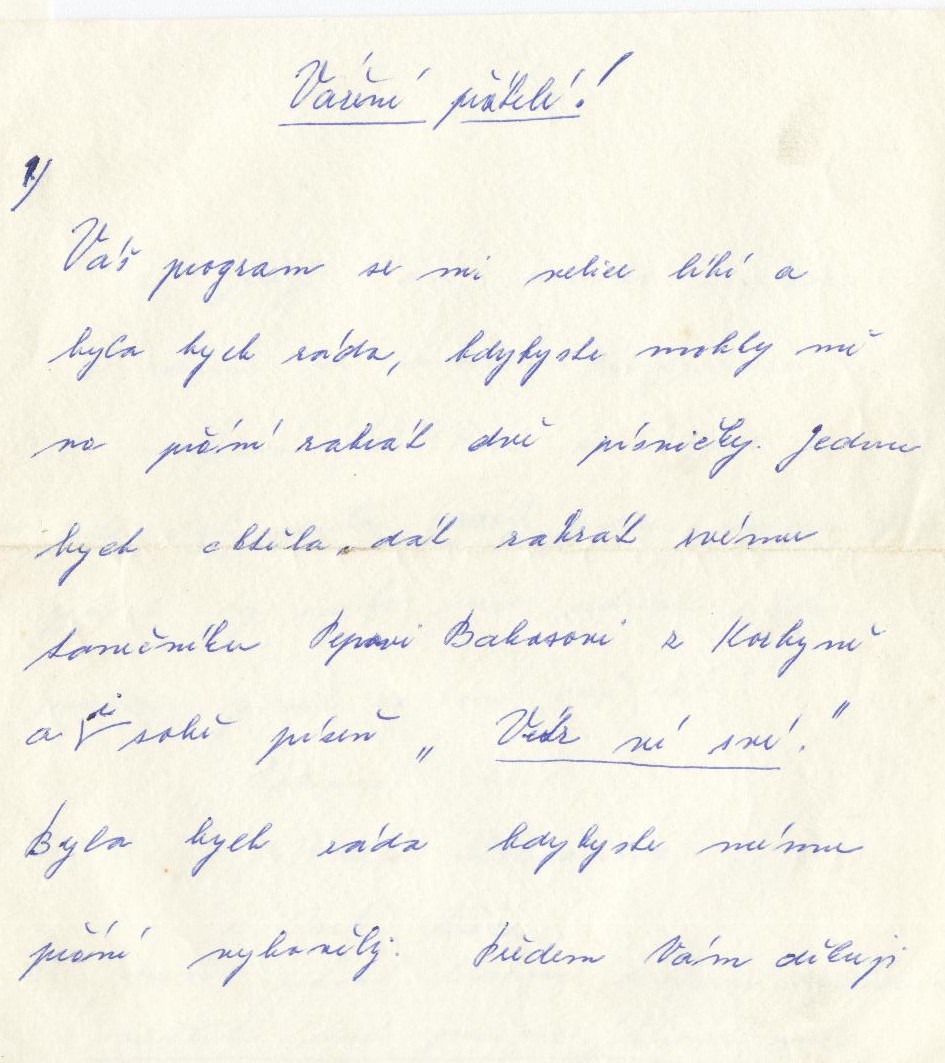 Vážení přátelé!
1)
Váš program se mi velice líbí a
byla bych ráda, kdybyste mohly mě
na přání zahrát dvě písničky. Jednu
bych chtěla dát zahrát svému
tanečníku Pepovi Bakosovi z Korkyně
a i sobě píseň „Vítr ví své."
Byla bych ráda kdybyste mému
přání vyhověly. Předem Vám děkuji